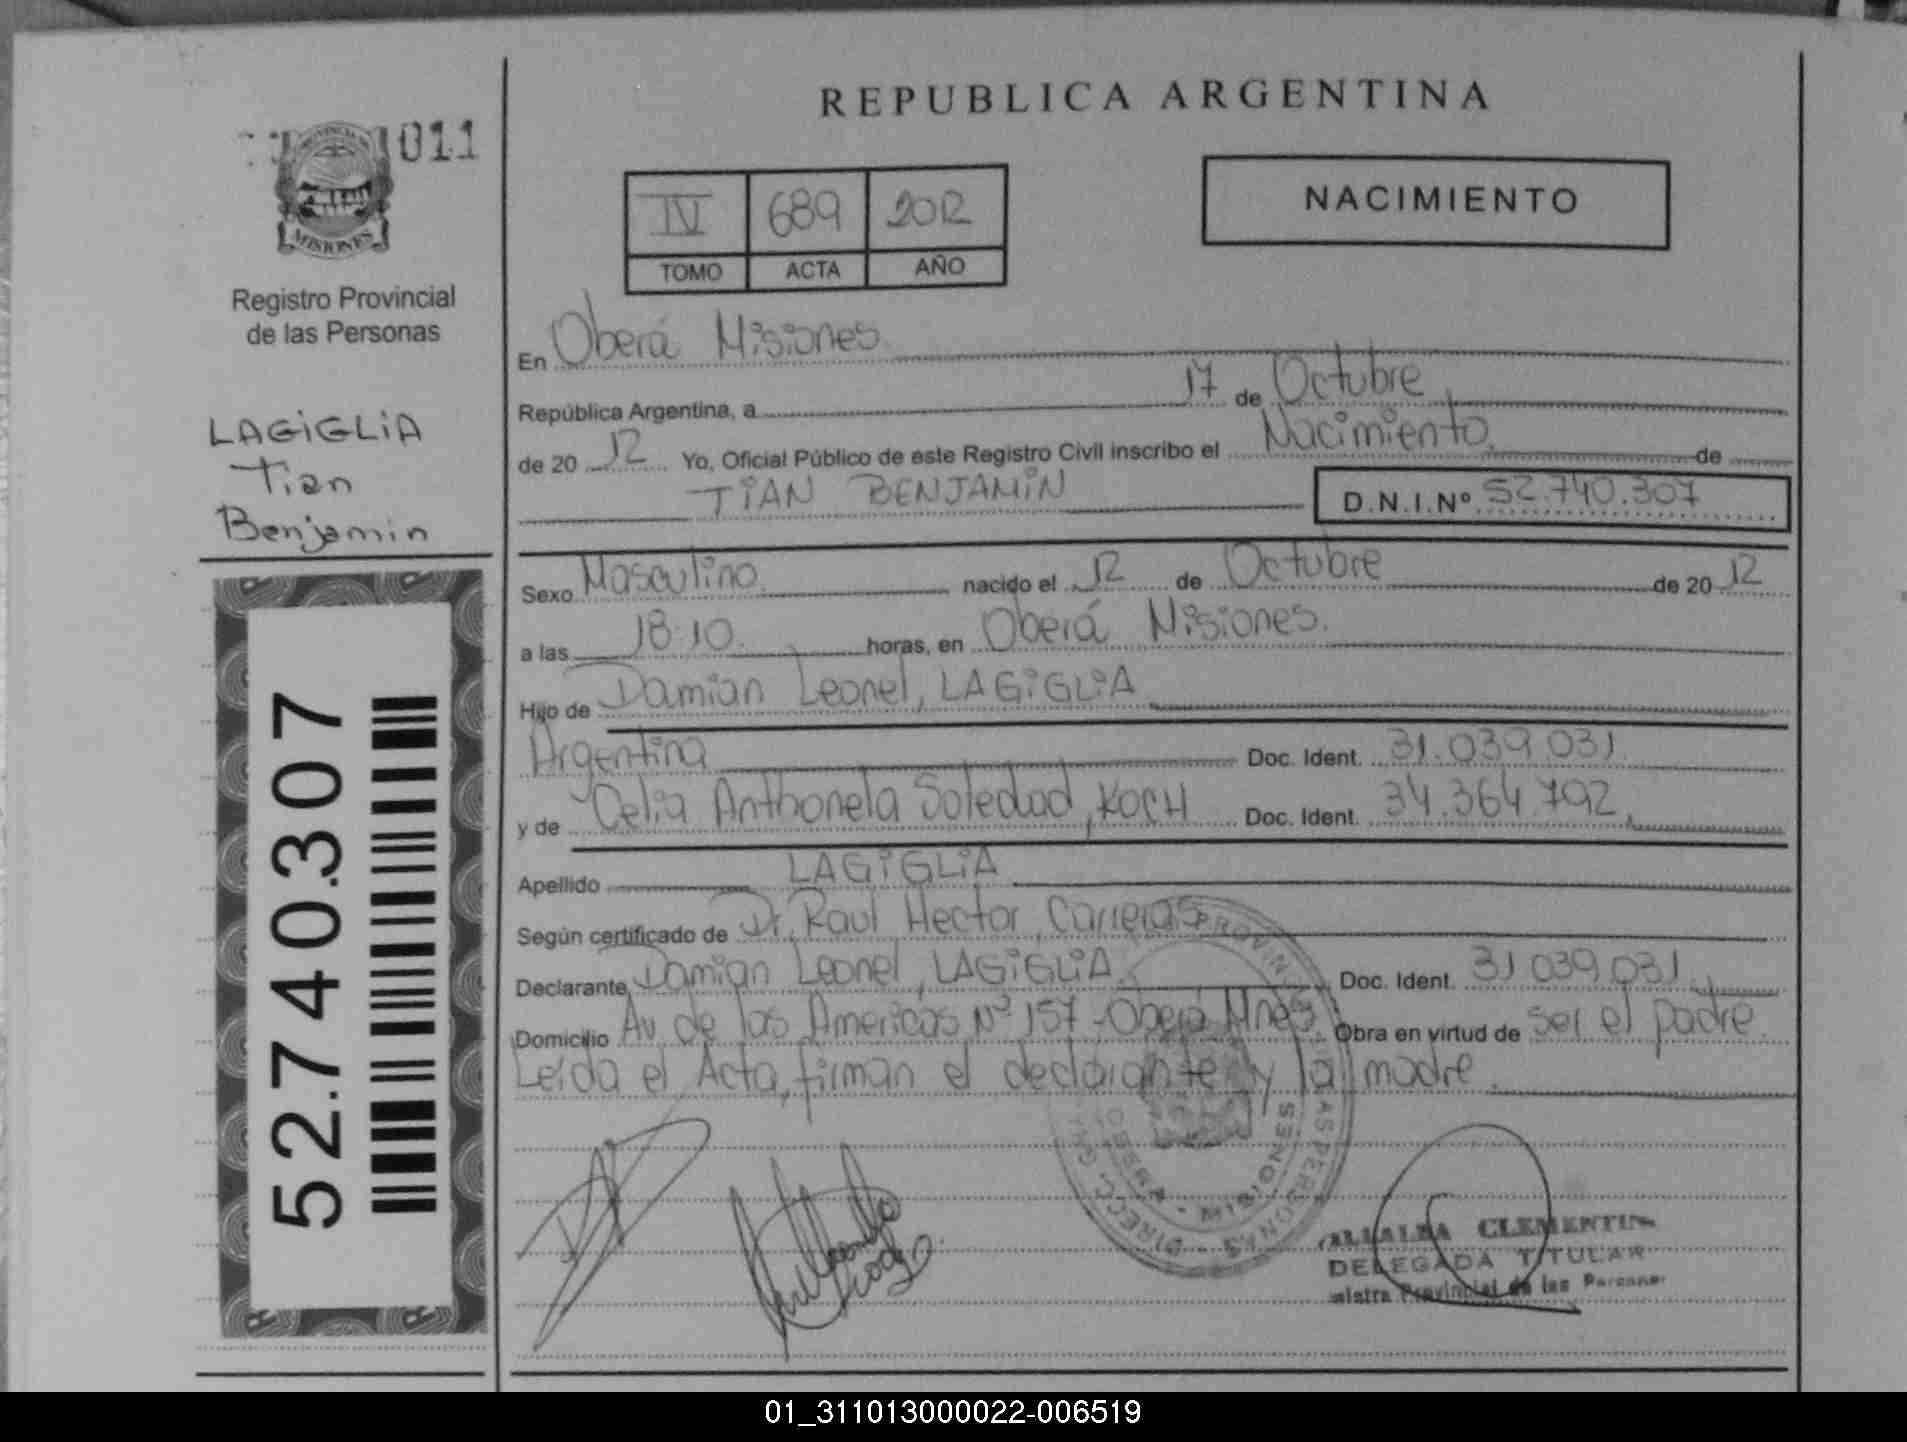 011
PROVINCIA DE
MISIONES
Registro Provincial
de las Personas
LAGIGLIA
Tian
Benjamin
52.740.307
REPUBLICA ARGENTINA
NACIMIENTO
IV 689 2012
TOMO ACTA AÑO
En Oberá Misiones
República Argentina, a 17 de Octubre
de 20 12 Yo, Oficial Público de este Registro Civil inscribo el Nacimiento de
TIAN BENJAMIN D.N.I.Nº 52.740.307
Sexo Masculino nacido el 12 de Octubre de 20 12
a las 18:10. horas, en Oberá Misiones.
Hijo de Damian Leonel, LAGIGLIA
Argentina Doc. Ident. 31.039.031
y de Celia Anthonela Soledad, KOCH Doc. Ident. 34.364.792
Apellido LAGIGLIA
Según certificado de Dr. Raul Hector Carreras
Declarante Damian Leonel, LAGIGLIA. Doc. Ident. 31.039.031
Domicilio Av. de las Americas Nº 157 - Oberá Mnes. Obra en virtud de ser el padre.
Leída el Acta, firman el declarante y la madre.
CLEMENTIN
DELEGADA TITULAR
Provincial de las Personas
01_311013000022-006519